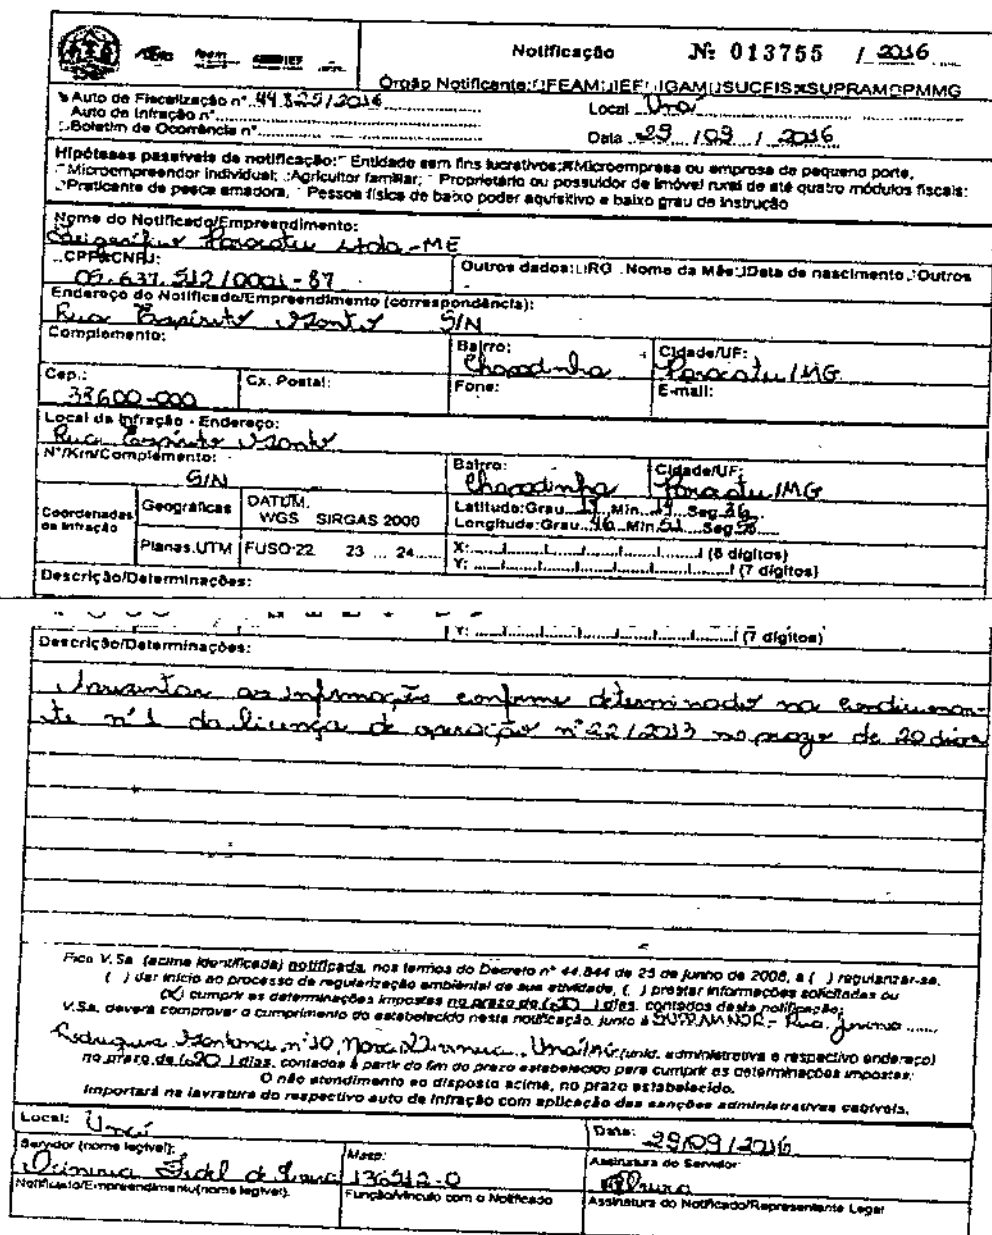 Notificação Nº 013755 / 2016
Órgão Notificante: FEAM IEF IGAM SUCFIS x SUPRAM PMMG
Auto de Fiscalização nº 44825/2016
Local Unaí
Auto de Infração nº
Boletim de Ocorrência nº
Data 29 / 09 / 2016
Hipóteses passíveis de notificação: Entidade sem fins lucrativos; Microempresa ou empresa de pequeno porte,
Microempreendor individual; Agricultor familiar; Proprietário ou possuidor de imóvel rural de até quatro módulos fiscais;
Praticante de pesca amadora, Pessoa física de baixo poder aquisitivo e baixo grau de instrução
Nome do Notificado/Empreendimento:
Frigorífico Paracatu Ltda - ME
CPF CNPJ:
Outros dados: RG Nome da Mãe Data de nascimento Outros
05.637.512/0001-87
Endereço do Notificado/Empreendimento (correspondência):
Rua Espírito Santo S/N
Complemento:
Bairro: Chapadinha
Cidade/UF: Paracatu/MG
Cep.: 38600-000
Cx. Postal:
Fone:
E-mail:
Local da Infração - Endereço:
Rua Espírito Santo
Nº/Km/Complemento: S/N
Bairro: Chapadinha
Cidade/UF: Paracatu/MG
Coordenadas da Infração
Geográficas
DATUM. WGS SIRGAS 2000
Latitude: Grau 17 Min 14 Seg 36
Longitude: Grau 46 Min 51 Seg
Planas.UTM FUSO 22 23 24
X: (6 dígitos)
Y: (7 dígitos)
Descrição/Determinações:
Y: (7 dígitos)
Descrição/Determinações:
Apresentar as informações conforme determinado na condicionan-
te nº 1 da licença de operação nº 22/2013 no prazo de 20 dias
Fica V.Sa. (acima identificada) notificada, nos termos do Decreto nº 44.844 de 25 de junho de 2008, a ( ) regularizar-se,
( ) dar início ao processo de regularização ambiental de sua atividade, ( ) prestar informações solicitadas ou
(X) cumprir as determinações impostas no prazo de (20) dias, contados desta notificação;
V.Sa. deverá comprovar o cumprimento do estabelecido nesta notificação, junto à SUPRAM NOR - Rua Jovino
Rodrigues Santana, nº 10, Nova Divineia, Unaí/MG (unid. administrativa e respectivo endereço)
no prazo de (20) dias, contados à partir do fim do prazo estabelecido para cumprir as determinações impostas;
O não atendimento ao disposto acima, no prazo estabelecido,
importará na lavratura do respectivo auto de infração com aplicação das sanções administrativas cabíveis.
Local: Unaí
Data: 29/09/2016
Servidor (nome legível):
Masp: 136512-0
Assinatura do Servidor
Notificado/Empreendimento (nome legível).
Função/Vínculo com o Notificado
Assinatura do Notificado/Representante Legal